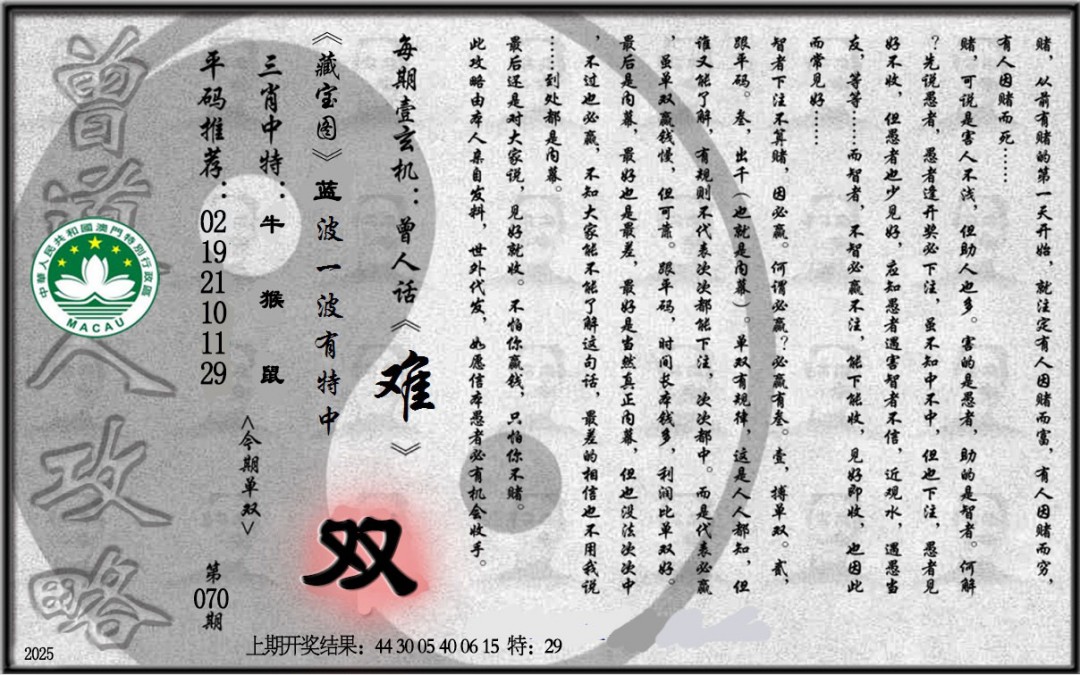 赌，从前有赌的第一天开始，就注定有人因赌而富，有人因赌而穷，
有人因赌而死……
赌，可说是害人不浅，但助人也多。害的是愚者，助的是智者。何解
？先说愚者，愚者逢开奖必下注，虽不知中不中，但也下注，愚者见
好不收，但愚者也少见好，应知愚者遇害智者不信，近观水，遇愚当
友，等等……而智者，不智必赢不注，能下能收，见好即收，也因此
而常见好……
智者下注不算赌，因必赢。何谓必赢？必赢有叁。壹，搏单双。贰，
跟平码。叁，出千（也就是内幕）。单双有规律，这是人人都知，但
谁又能了解，有规则不代表次次都能下注，次次都中。而是代表必赢
，虽单双赢钱慢，但可靠。跟平码，时间长本钱多，利润比单双好。
最后是内幕，最好也是最差，最好是当然真正内幕，但也没法次次中
，不过也必赢，不知大家能不能了解这句话，最差的相信也不用我说
……到处都是内幕。
最后还是对大家说，见好就收。不怕你赢钱，只怕你不赌。
此攻略由本人亲自发料，世外代发，如愿信本愚者必有机会收手。
每期壹玄机：曾人话《难》
《藏宝图》蓝波一波有特中
双
三肖中特：牛 猴 鼠
<今期单双>
平码推荐：02 19 21 10 11 29
第070期
曾道人攻略
中華人民共和國澳門特別行政區
MACAU
2025
上期开奖结果：44 30 05 40 06 15 特：29